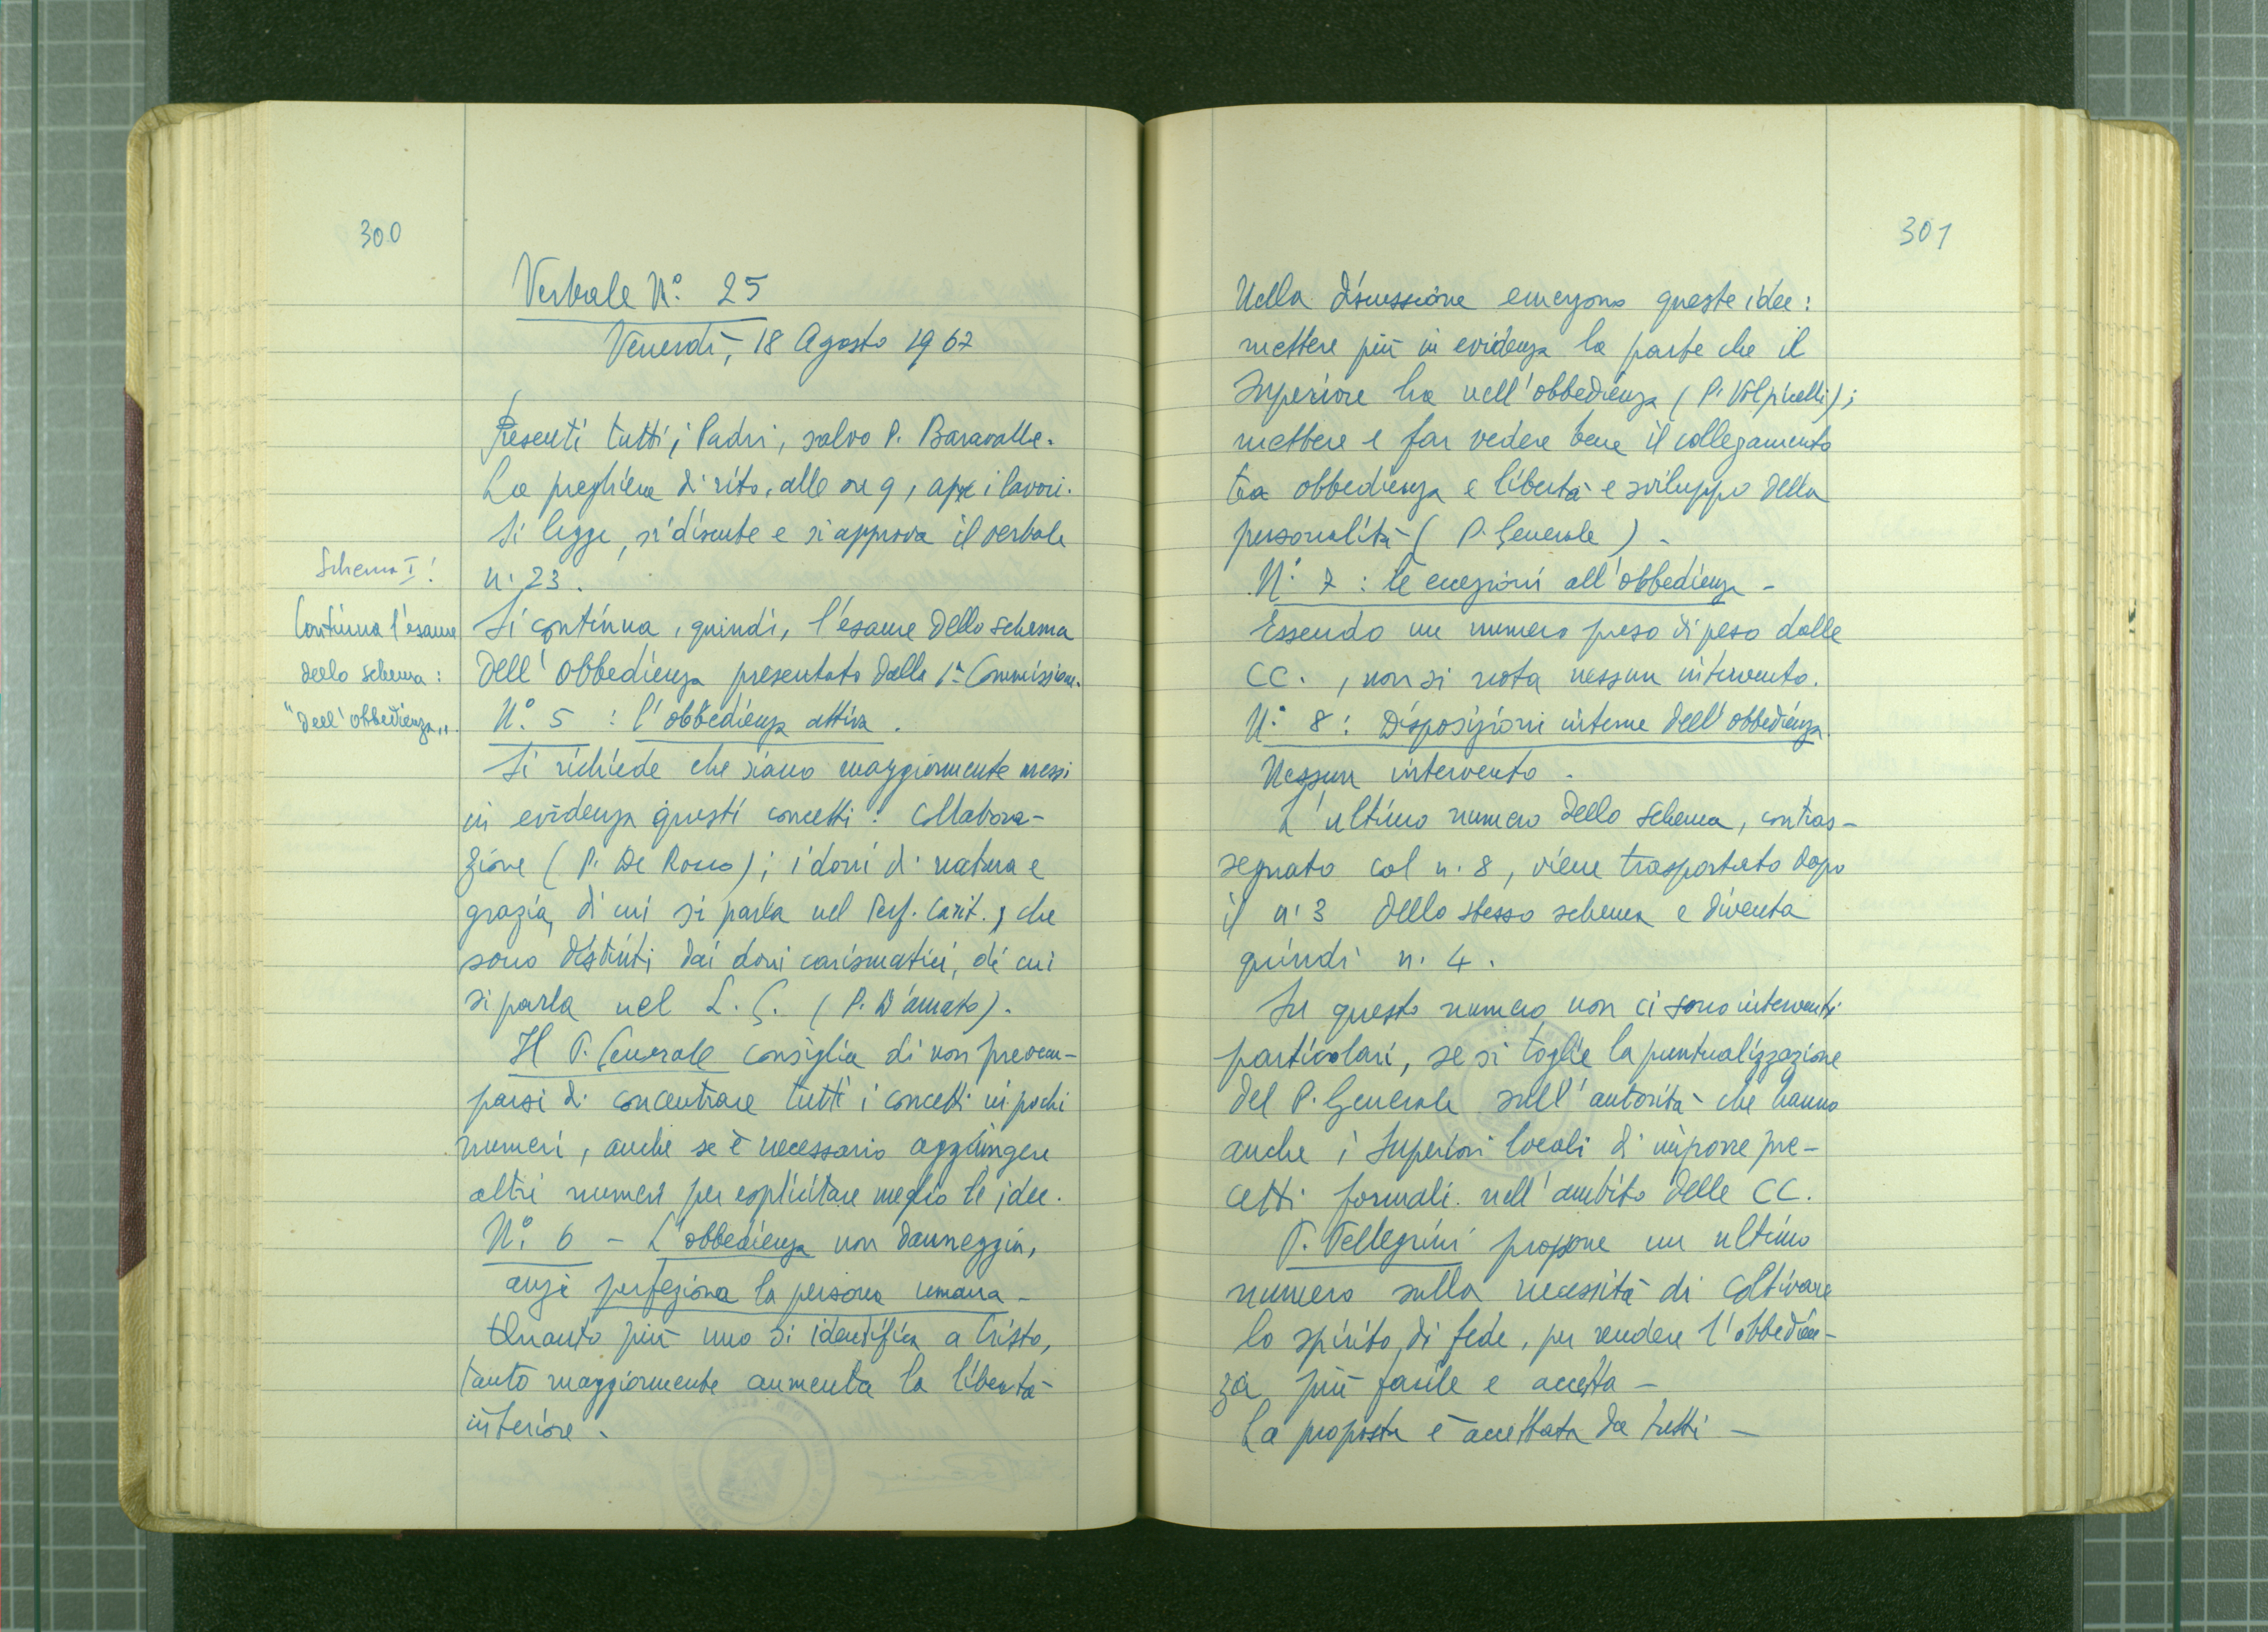 300
Verbale N.° 25
Venerdì, 18 Agosto 1967
Presenti tutti i Padri, salvo P. Baravalle.
La preghiera di rito, alle ore 9, apre i lavori.
Si legge, si discute e si approva il verbale
n. 23.
Schema I:
Continua l'esame
dello schema:
"dell'obbedienza".
Si continua, quindi, l'esame dello schema
dell'Obbedienza presentato dalla 1ª Commissione.
N.° 5 : l'obbedienza attiva.
Si richiede che siano maggiormente messi
in evidenza questi concetti: collabora-
zione (P. De Rocco); i doni di natura e
grazia, di cui si parla nel Perf. Carit., che
sono distinti dai doni carismatici, di cui
si parla nel L. G. (P. D'Amato).
Il P. Generale consiglia di non preoccu-
parsi di concentrare tutti i concetti in pochi
numeri, anche se è necessario aggiungere
altri numeri per esplicitare meglio le idee.
N.° 6 - L'obbedienza non danneggia,
anzi perfeziona la persona umana -
Quanto più uno si identifica a Cristo,
tanto maggiormente aumenta la libertà
interiore.
301
Nella discussione emergono queste idee:
mettere più in evidenza la parte che il
Superiore ha nell'obbedienza (P. Volpicelli);
mettere e far vedere bene il collegamento
tra obbedienza e libertà e sviluppo della
personalità (P. Generale) -
N.° 7 : le eccezioni all'obbedienza -
Essendo un numero preso di peso dalle
CC., non si nota nessun intervento.
N.° 8 : Disposizioni interne dell'obbedienza.
Nessun intervento -
L'ultimo numero dello schema, contras-
segnato col n. 8, viene trasportato dopo
il n. 3 dello stesso schema e diventa
quindi n. 4.
Su questo numero non ci sono interventi
particolari, se si toglie la puntualizzazione
del P. Generale sull'autorità che hanno
anche i Superiori locali di imporre pre-
cetti formali nell'ambito delle CC.
P. Pellegrini propone un ultimo
numero sulla necessità di coltivare
lo spirito di fede, per rendere l'obbedien-
za più facile e accetta -
La proposta è accettata da tutti -